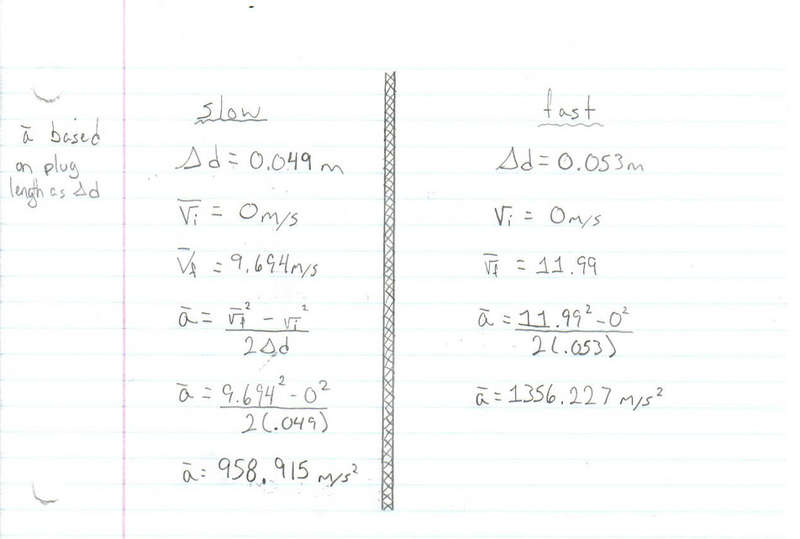 ā based
on plug
lengh as Δd
slow
Δd = 0.049 m
v̄i = 0 m/s
v̄f = 9.694 m/s
ā = v̄f² - v̄i² / 2Δd
ā = 9.694² - 0² / 2(.049)
ā = 958.915 m/s²
fast
Δd = 0.053 m
vi = 0 m/s
v̄f = 11.99
ā = 11.99² - 0² / 2(.053)
ā = 1356.227 m/s²